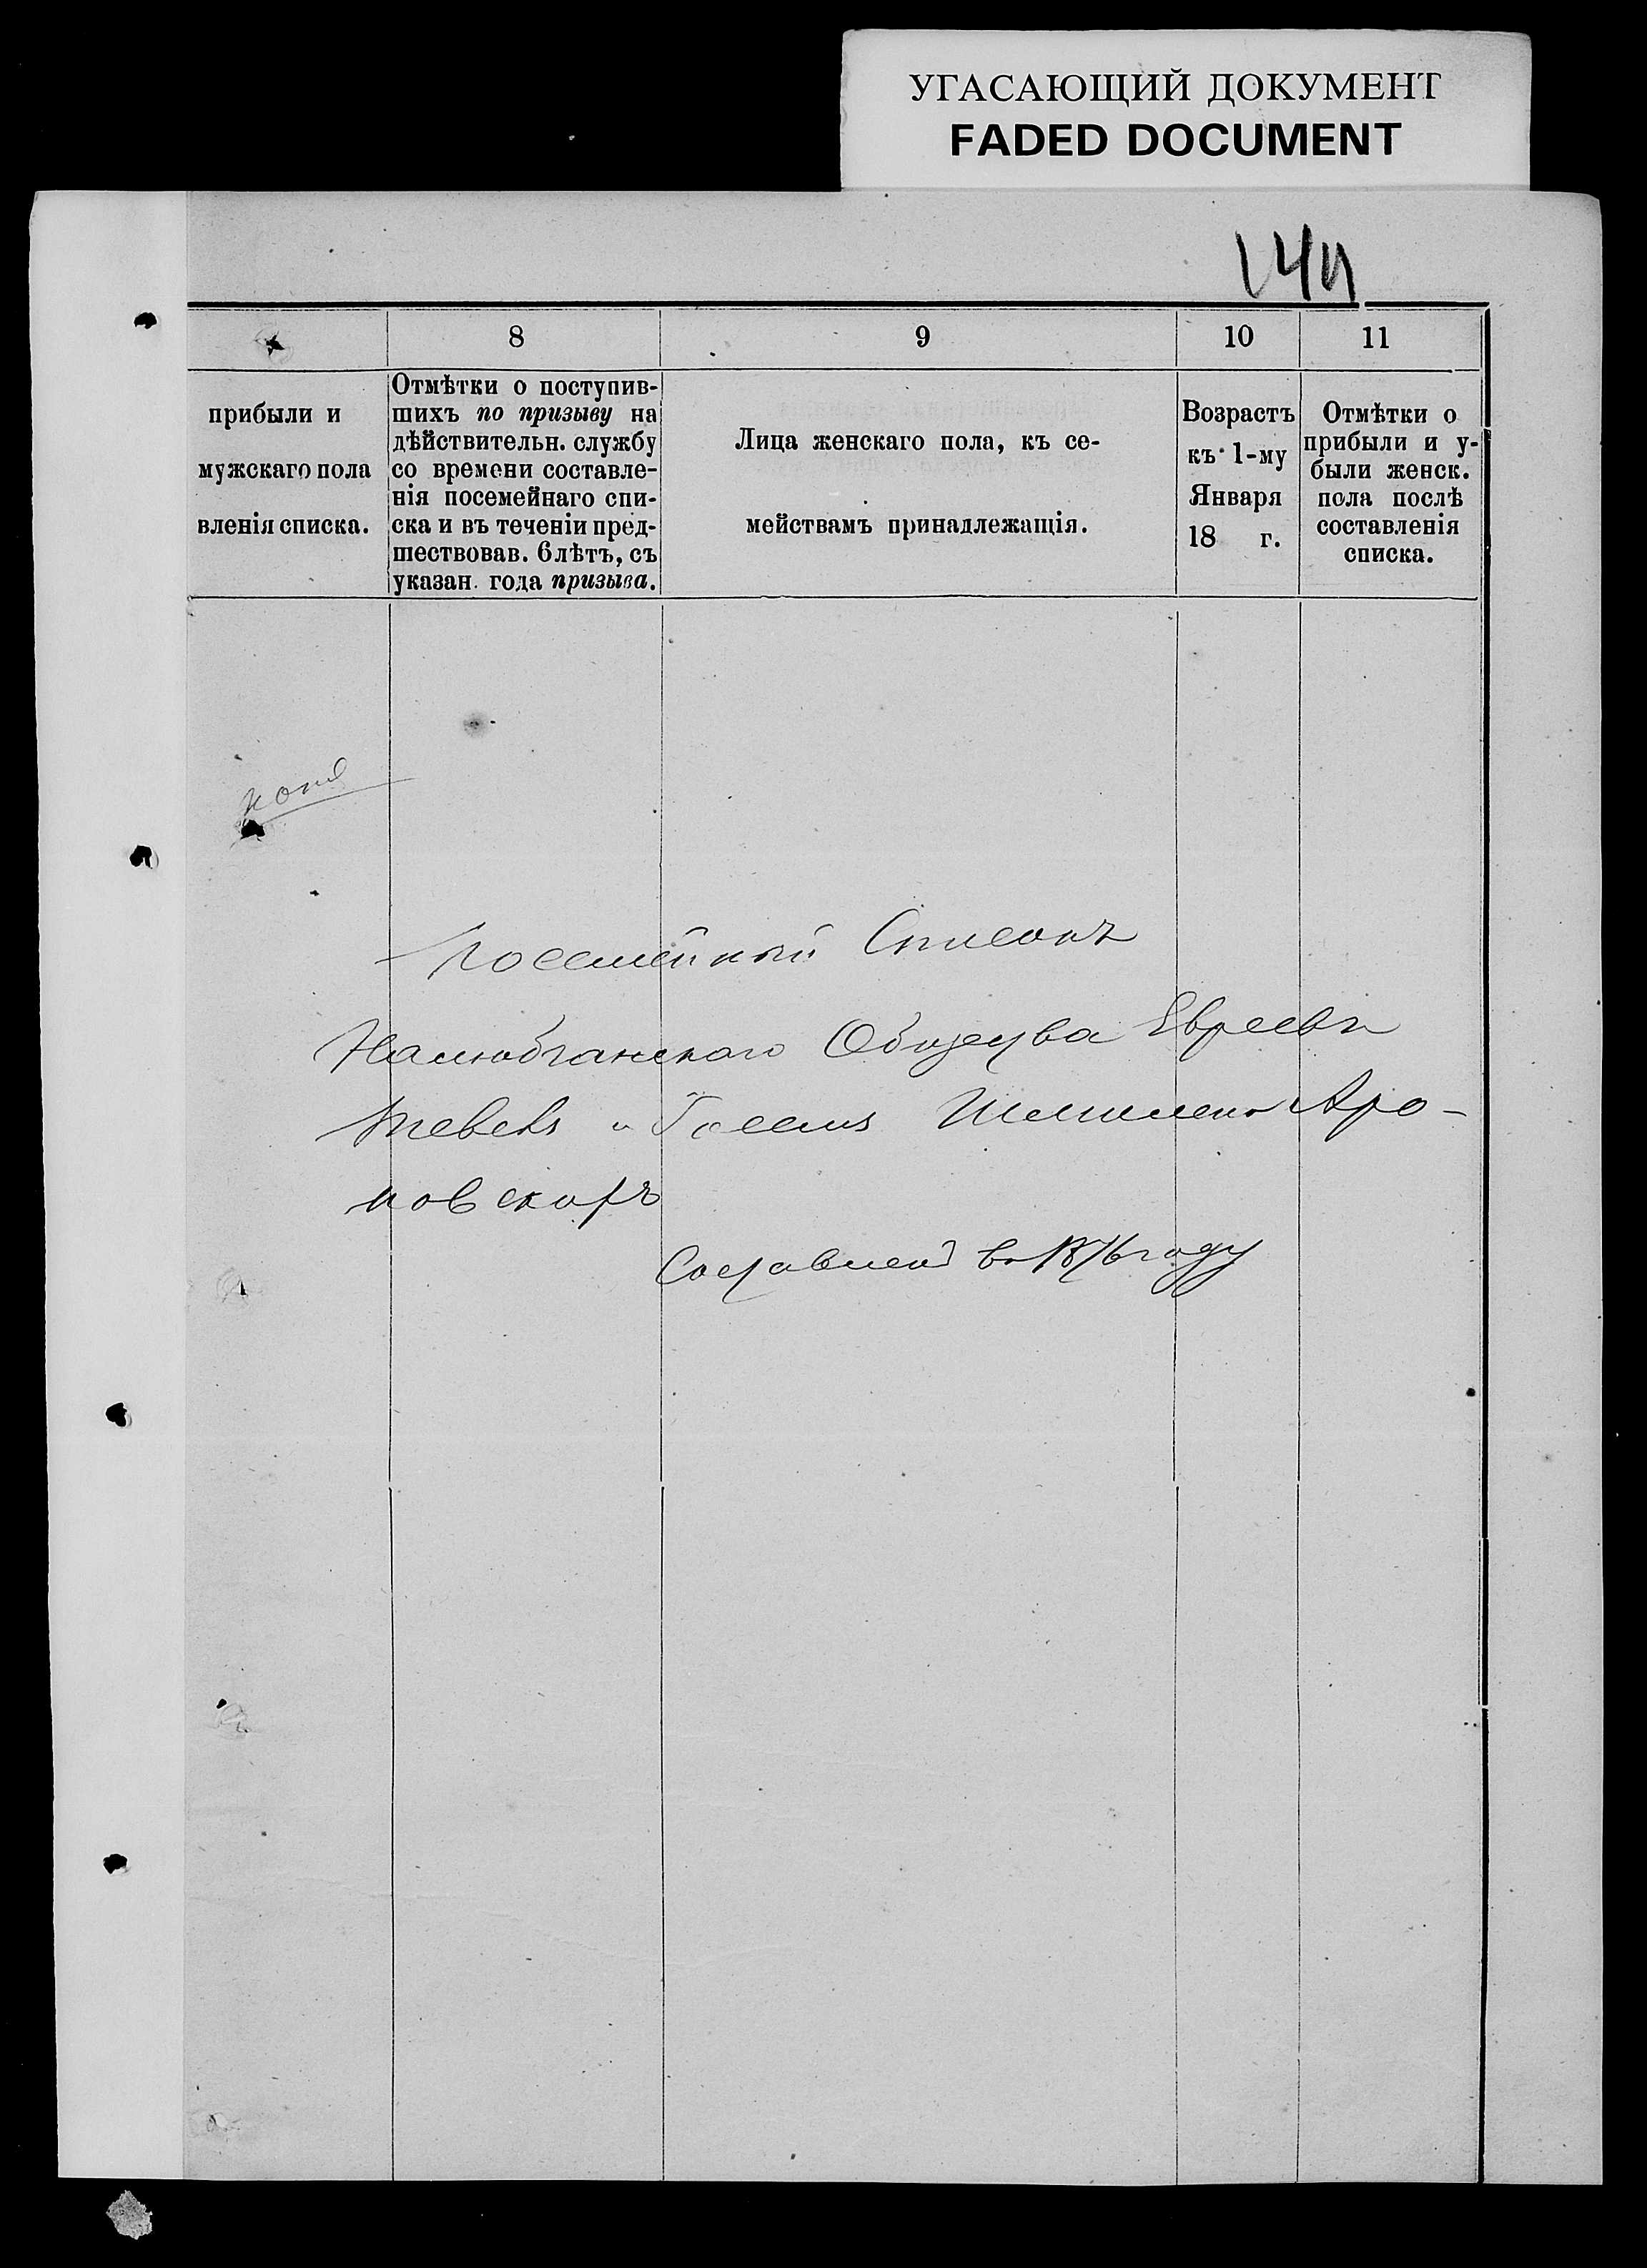 УГАСАЮЩИЙ ДОКУМЕНТ
FADED DOCUMENT
8
9
10
11
прибыли и
мужскаго пола
вленія списка.
Отмѣтки о поступив-
шихъ по призыву на
дѣйствительн. службу
со времени составле-
нія посемейнаго спи-
ска и въ теченіи пред-
шествовав. 6 лѣтъ, съ
указан. года призыва.
Лица женскаго пола, къ се-
мействамъ принадлежащія.
Возрастъ
къ 1-му
Января
18 г.
Отмѣтки о
прибыли и у-
были женск.
пола послѣ
составленія
списка.
копія
Посемейный Списокъ
Общества Евреевъ
Аро-
новскихъ
Составленъ въ 1876 году